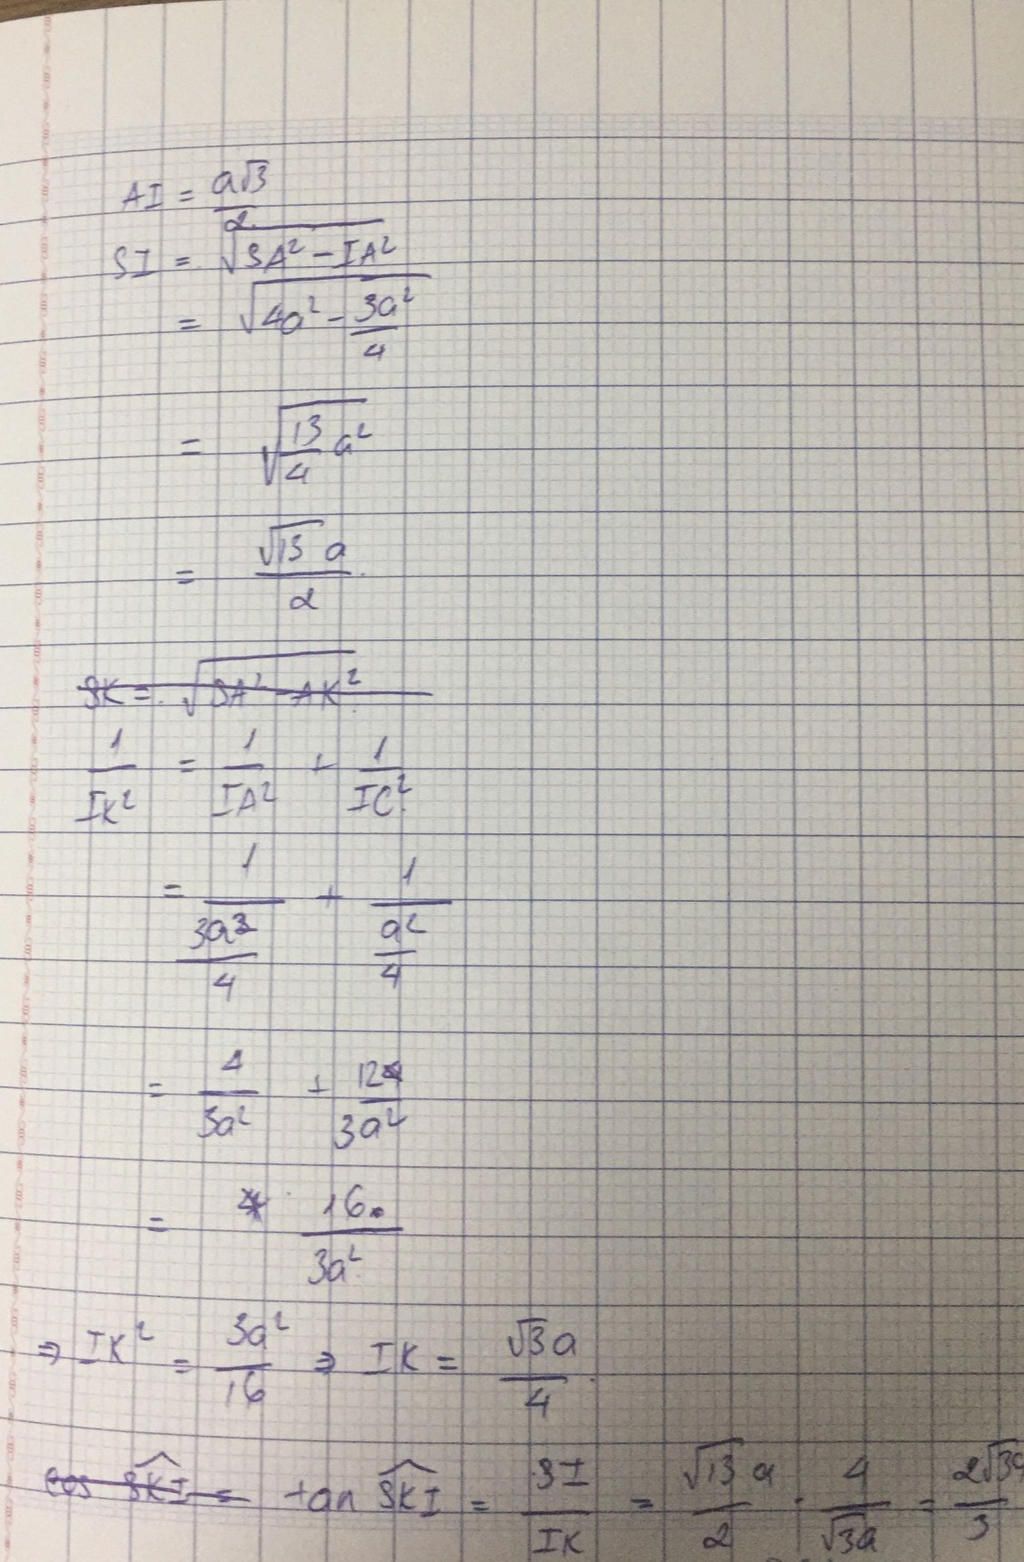 AI = a√3/2
SI = √(SA² - IA²)
= √(4a² - 3a²/4)
= √(13/4 a²)
= √13 a/2
SK = √(SA² - AK²)
1/IK² = 1/IA² + 1/IC²
= 1/(3a²/4) + 1/(a²/4)
= 4/3a² + 12/3a²
= 16/3a²
⇒ IK² = 3a²/16 ⇒ IK = √3a/4
cos SKI = tan SKI = SI/IK = √13 a/2 · 4/√3a = 2√39/3